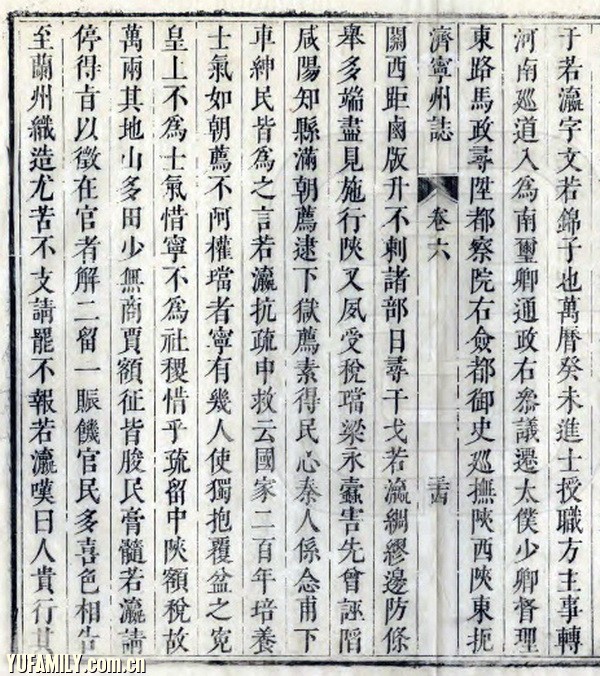 于若瀛字文若錦子也萬曆癸未進士授職方主事轉
河南廵道入為南璽卿通政右叅議遷太僕少卿督理
東路馬政尋陞都察院右僉都御史廵撫陝西陝東扼
濟寧州誌 卷六
關西距鹵版升不剌諸部日尋干戈若瀛綢繆邊防條
舉多端盡見施行陝又夙受稅璫梁永蠹害先曾誣陷
咸陽知縣滿朝薦逮下獄薦素得民心秦人係念甫下
車紳民皆為之言若瀛抗疏申救云國家二百年培養
士氣如朝薦不阿權璫者寧有幾人使獨抱覆盆之寃
皇上不為士氣惜寧不為社稷惜乎疏留中陝額稅故
萬兩其地山多田少無商賈額征皆朘民膏髓若瀛請
停得旨以徵在官者解二留一賑饑官民多喜色相告
至蘭州織造尤苦不支請罷不報若瀛嘆曰人貴行其
YUFAMILY.com.cn